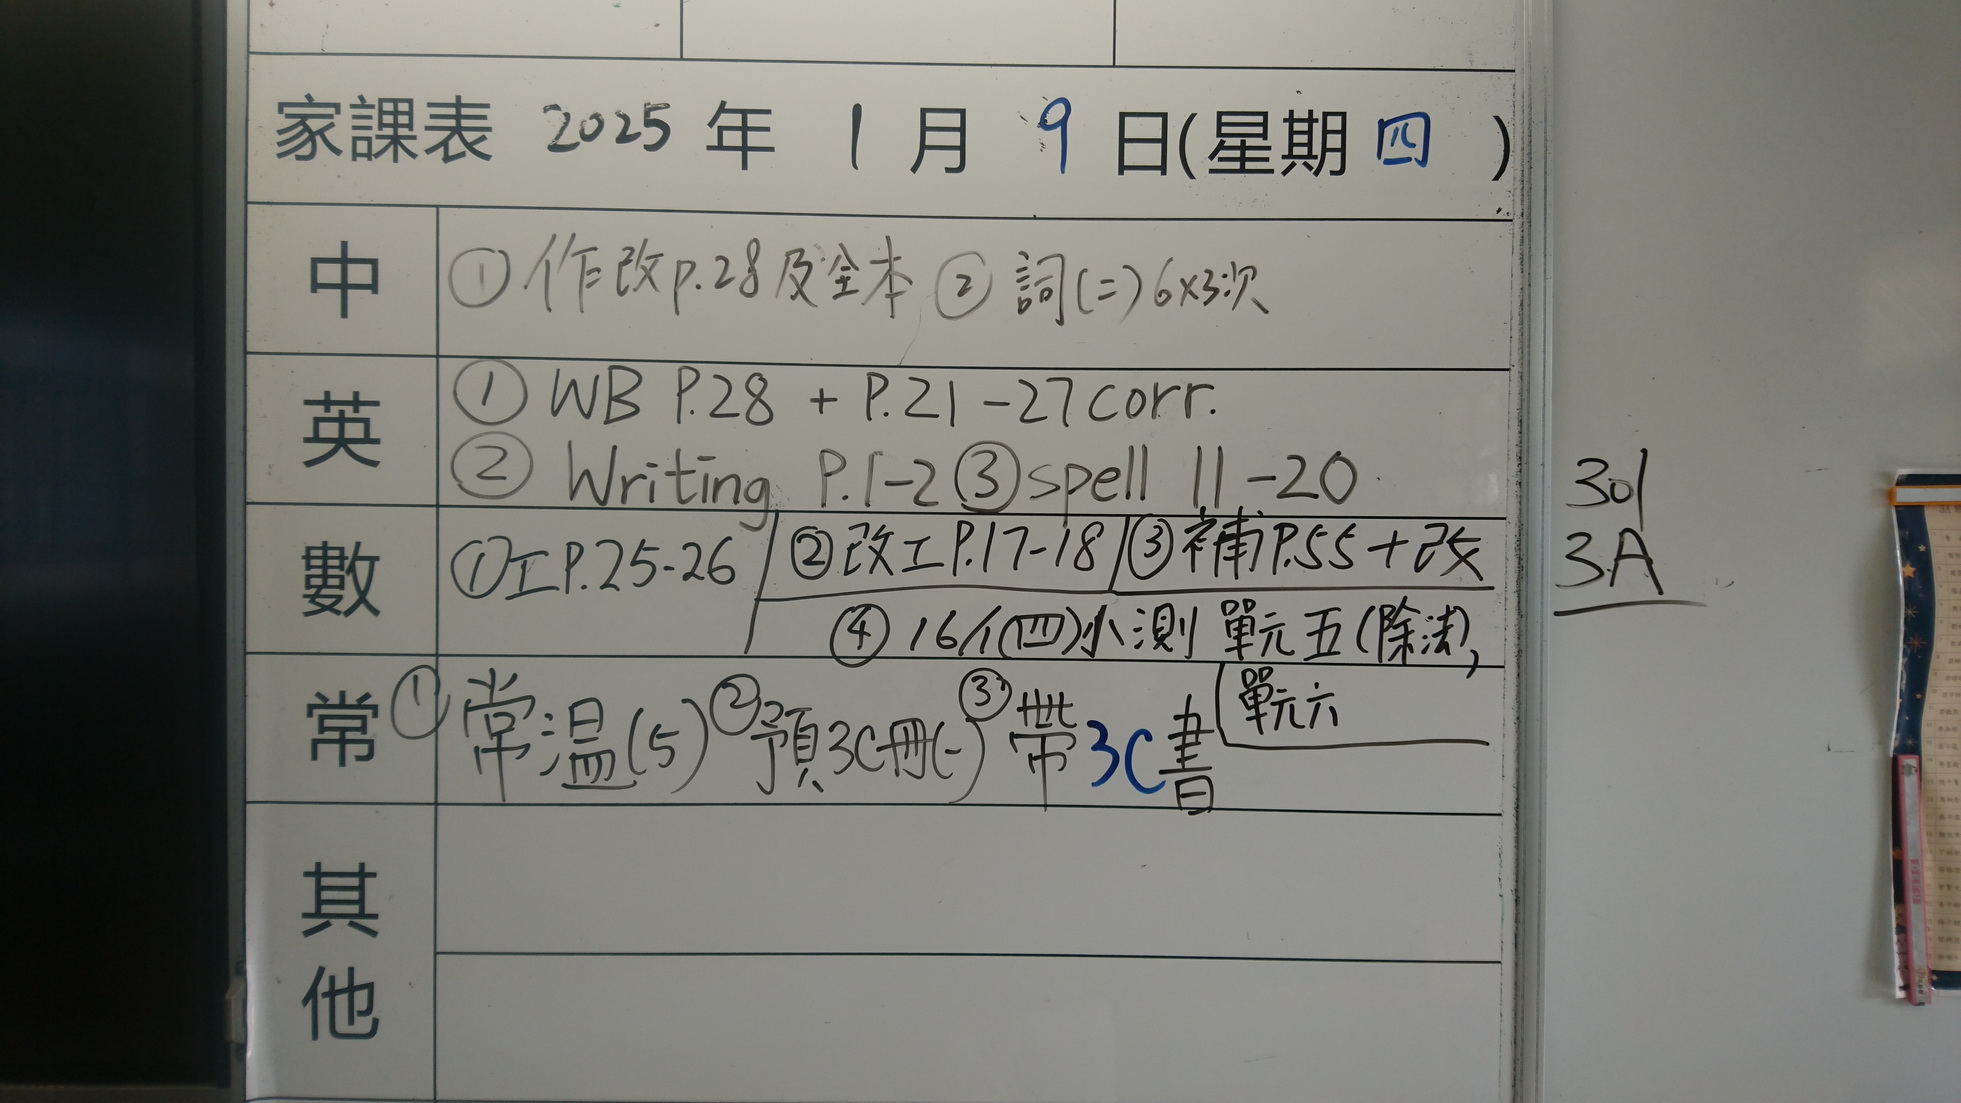 家課表 2025 年 1 月 9 日(星期 四 )
中 ① 作改 p.28 及全本 ② 詞(二) 6x3次
英 ① WB P.28 + P.21 -27 corr.
② Writing P.1-2 ③ spell 11-20
數 ① 工P.25-26 ② 改工P.17-18 ③ 補P.55+改
④ 16/1(四)小測 單元五(除法),
單元六
常 ① 常溫(5) ② 預3C冊(一) ③ 帶3C書
其他
301
3A